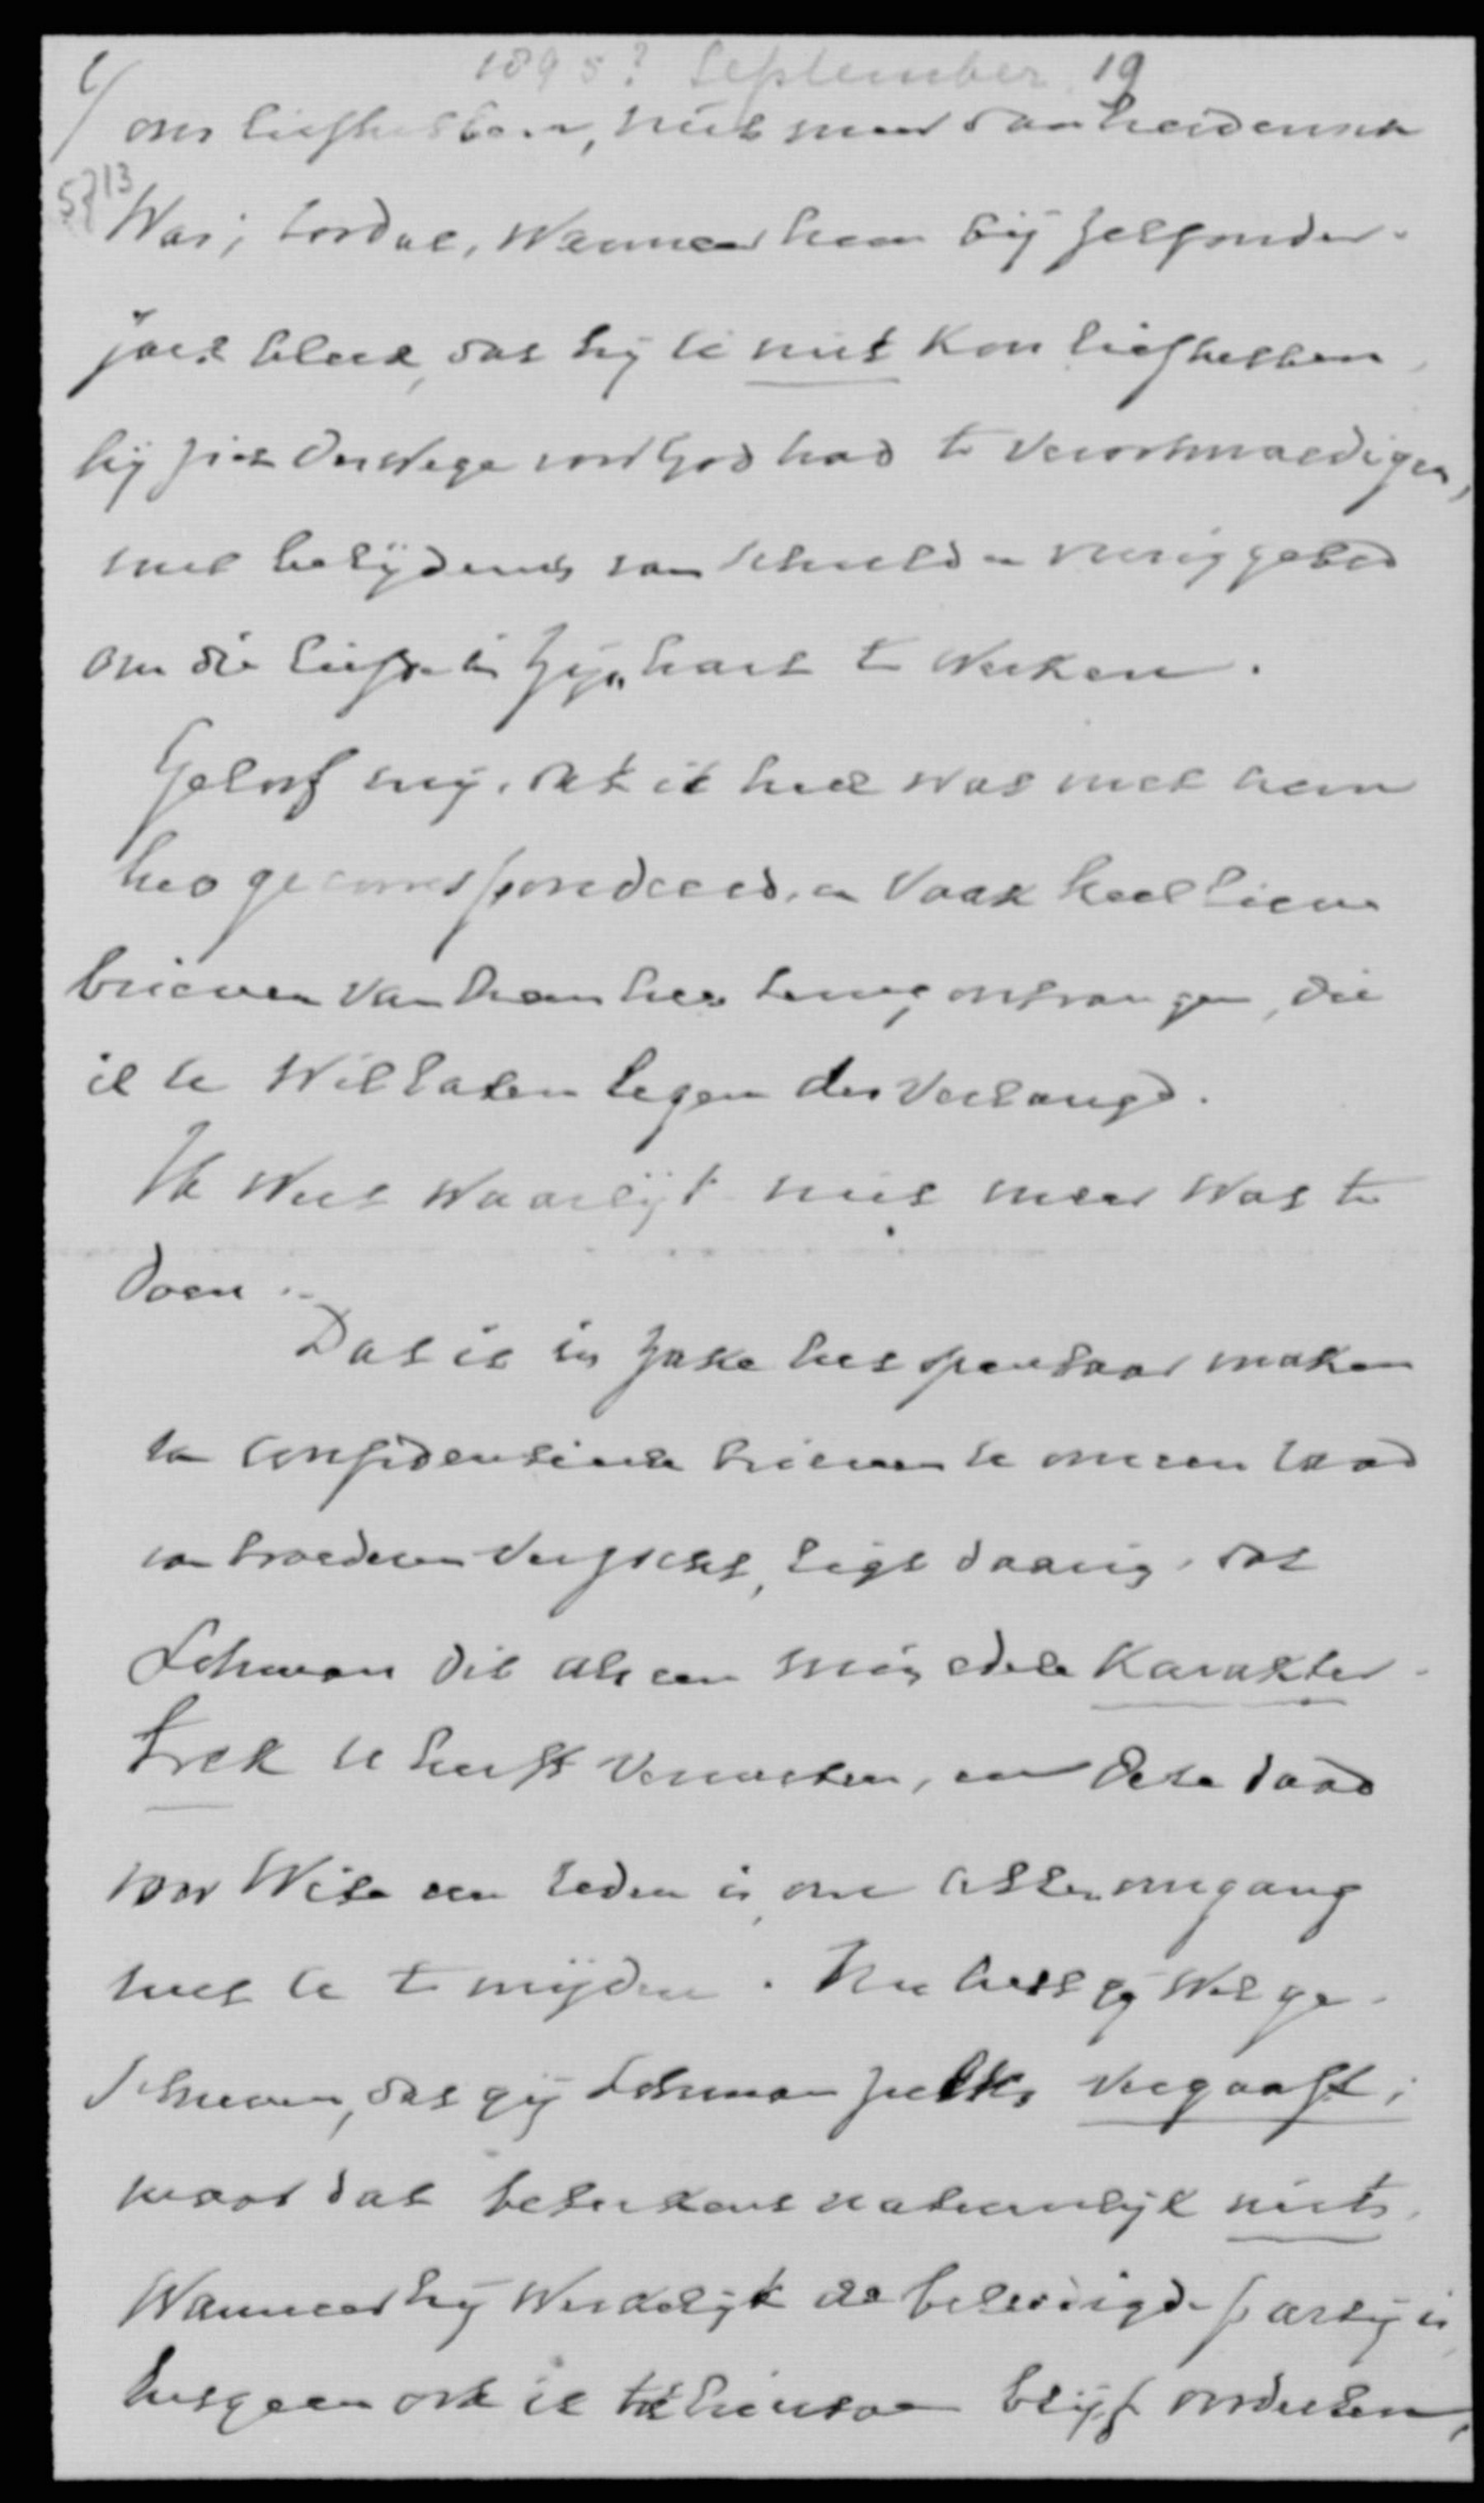 1895? September 19
c/ om liefhebben, niet meer dan heidensch
5713
was; bordat, wanneer hem bij zelfonder-
zoek bleek, dat hij U niet kon liefhebben,
hij zich deswege voor God had te verootmoedigen,
met belijdenis van schuld en vurig gebed
om die liefde in zijn hart te werken.
Geloof mij, dat ik heel wat met hem
heb gecorrespondeerd, en vaak heel lieve
brieven van hem heb terug ontvangen, die
ik U wil laten lezen des verlangd.
Ik weet waarlijk niet meer wat te
doen.
Dat ik in zake het openbaar maken
van confidentieele brieven U om een raad
van broederen verzocht, ligt daarin, dat
Lohman dit als een mijn edele karakter-
trek U heeft verweten, en deze daad
voor Wite een reden is, om allen omgang
met U te mijden. Nu hebt gij wel ge-
schreven, dat gij Lohman zulks vergaaft;
maar dat beteekent natuurlijk niets,
Wanneer hij werkelijk de beleedigde partij is,
hetgeen ook ik blijf oordeelen,